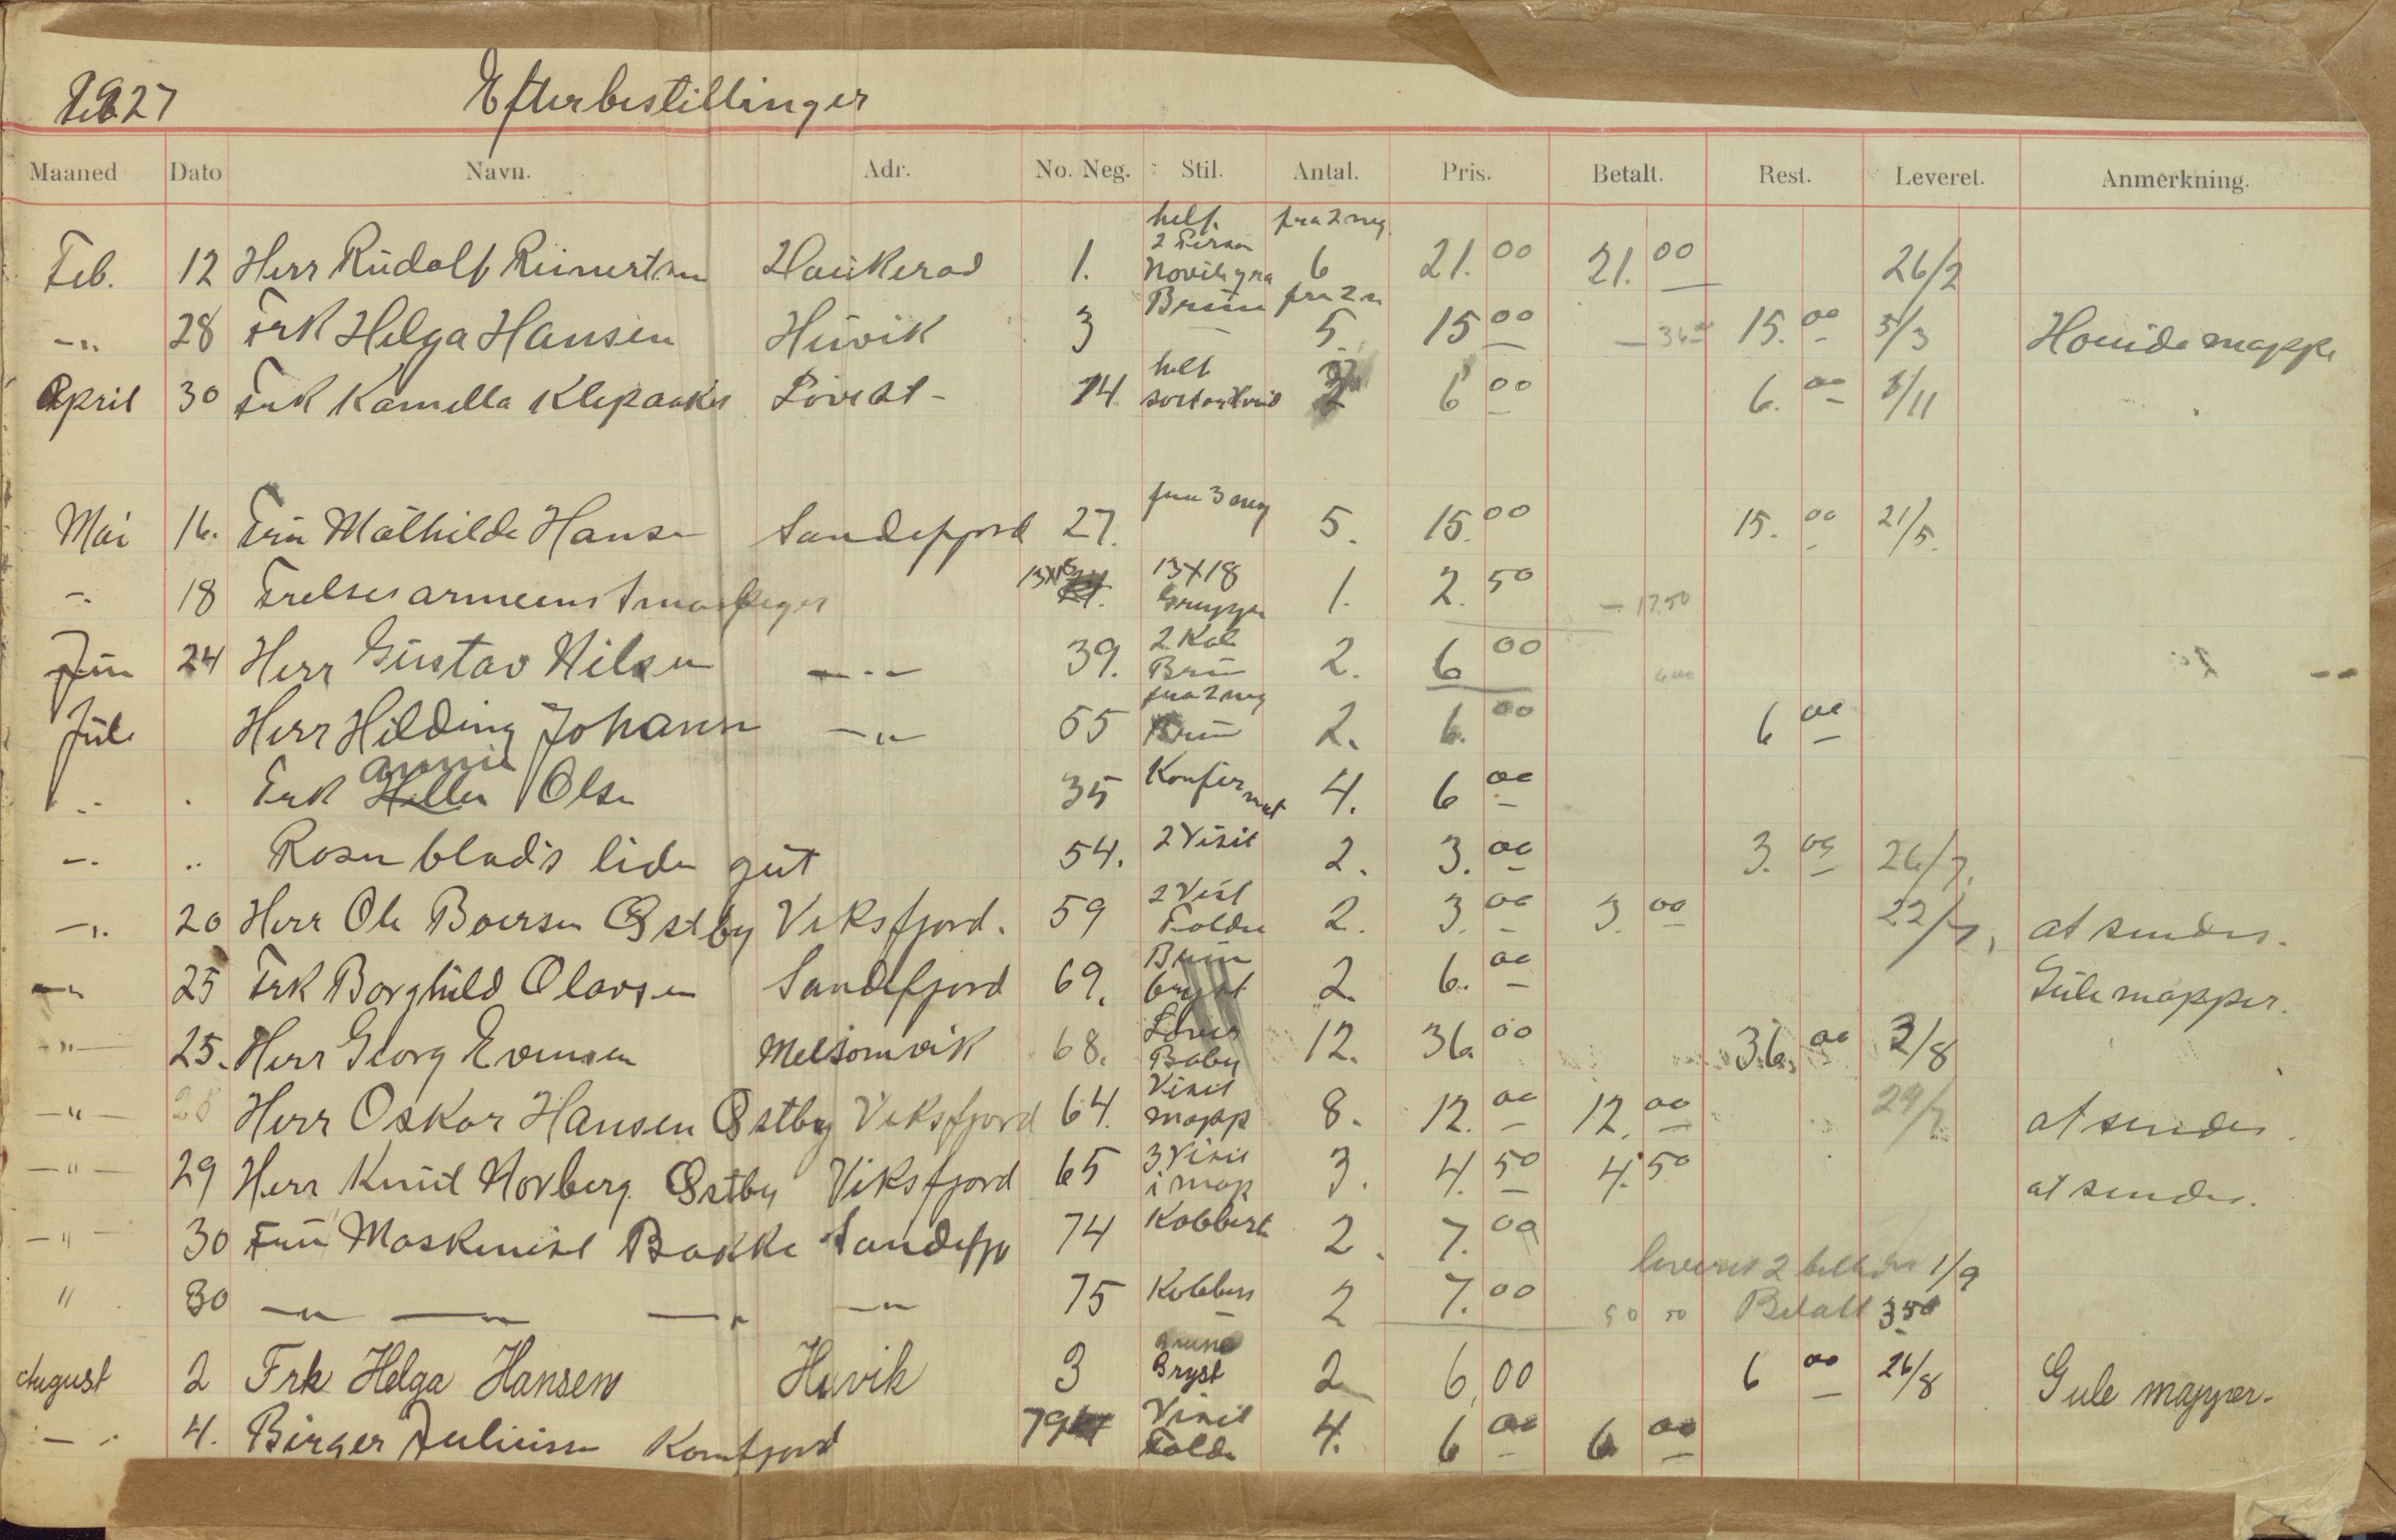 1927 Efterbestillinger
Maaned Dato Navn. Adr. No. Neg. Stil. Antal. Pris. Betalt. Rest. Leveret. Anmerkning.
helf. fra 2 neg.
2 Person
Feb. 12 Herr Rudolf Reinertsen Haukerød 1. 6 21.00 21.00 26/2
Brun fra 2 n
-"- 28 Frk Helga Hansen Huvik 3 5. 15 00 - 36 00 15. 00 5/3 Hvide mappe
helt
April 30 Frk Kamella Klepaaker 14. sort og hvid 2 6 00 6. 00 /11
fra 3 neg
Mai 16. Fru Mathilde Hansen Sandefjord 27. 5. 15.00 15. 00 21/5.
13X18 13X18
-"- 18 Frelsesarmeens Gruppe 1. 2. 50 - 17.50
2 Kab
Jun 24 Herr Gustav Nilsen -"- 39. Brun 2. 6 00 6 00
fra 2 neg
Juli Herr Hilding Johansen -"- 55 Brun 2. 6. 00 6 00
Annie
-"- Frk Olsen 35 Konfirmat 4. 6 00
-"- " Rosenblads liden gut 54. 2 Visit 2. 3. 00 3. 00 26/7.
2 Visit
-"- 20 Herr Ole Boersen Østby Viksfjord. 59 Folder 2. 3. 00 3. 00 22/7, at sendes.
Brun
-"- 25 Frk Borghild Olavsen Sandefjord 69. bryst 2. 6. 00 Gule mapper.
-"- 25. Herr Georg Evensen Melsomvik 68. Baby 12. 36. 00 36. 00 3/8
Visit
-"- 28 Herr Oskar Hansen Østby Viksfjord 64. mapp 8. 12. 00 12. 00 29/7 at sendes.
3 Visit
-"- 29 Herr Knut Hovberg Østby Viksfjord 65 i map 3. 4. 50 4. 50 at sendes.
-"- 30 Fru Maskinist Bakke Sandefjo 74 Kabbinet 2. 7. 00
leveret 2 billeder 1/9
" 30 -"- -"- -"- -"- 75 Kabben 2 7. 00 50 50 Betalt 3 50
Brune
August 2 Frk Helga Hansen Huvik 3 Bryst 2 6,00 6 00 26/8 Gule mapper.
Visit
-"- 4. Birger Juliussen 79 Folde 4. 6 00 6 00